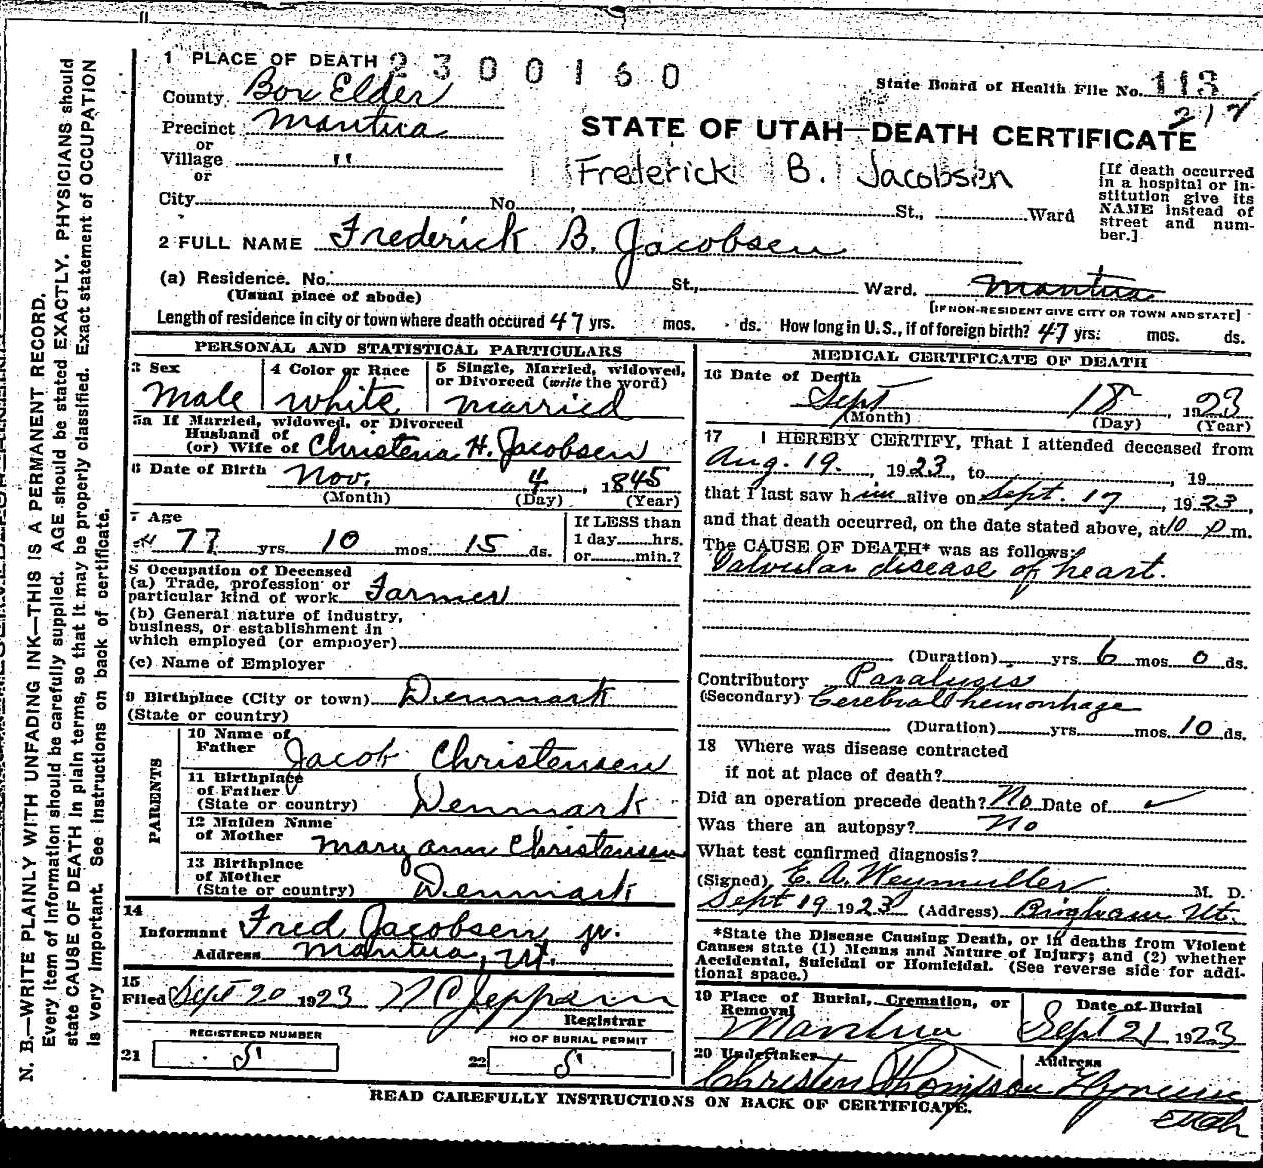 1 PLACE OF DEATH 2 3 0 0 1 6 0
State Board of Health File No. 113
217
County Box Elder
Precinct Mantua
or
Village "
or
STATE OF UTAH—DEATH CERTIFICATE
Frederick B. Jacobsen
[If death occurred in a hospital or institution give its NAME instead of street and number.]
City No. St., Ward
2 FULL NAME Frederick B. Jacobsen
(a) Residence. No. St., Ward. Mantua
(Usual place of abode) [IF NON-RESIDENT GIVE CITY OR TOWN AND STATE]
Length of residence in city or town where death occured 47 yrs. mos. ds. How long in U.S., if of foreign birth? 47 yrs. mos. ds.
PERSONAL AND STATISTICAL PARTICULARS
3 Sex Male
4 Color or Race white
5 Single, Married, widowed, or Divorced (write the word) married
5a If Married, widowed, or Divorced
Husband of
(or) Wife of Christena H. Jacobsen
6 Date of Birth Nov. 4, 1845
(Month) (Day) (Year)
7 Age
77 yrs. 10 mos. 15 ds.
If LESS than
1 day hrs.
or min.?
8 Occupation of Deceased
(a) Trade, profession or
particular kind of work Farmer
(b) General nature of industry,
business, or establishment in
which employed (or employer)
(c) Name of Employer
9 Birthplace (City or town) Denmark
(State or country)
PARENTS
10 Name of Father Jacob Christensen
11 Birthplace of Father
(State or country) Denmark
12 Maiden Name of Mother Mary ann Christensen
13 Birthplace of Mother
(State or country) Denmark
14
Informant Fred Jacobsen jr.
Address Mantua, Ut.
15
Filed Sept 20 1923 N C Jeppsen
Registrar
REGISTERED NUMBER
21 5
NO OF BURIAL PERMIT
22 5
MEDICAL CERTIFICATE OF DEATH
16 Date of Death
Sept 18, 1923
(Month) (Day) (Year)
17 I HEREBY CERTIFY, That I attended deceased from
Aug. 19, 1923, to , 19
that I last saw him alive on Sept. 17, 1923,
and that death occurred, on the date stated above, at 10 p m.
The CAUSE OF DEATH* was as follows:
Valvular disease of heart.
(Duration) yrs 6 mos 0 ds.
Contributory Paralysis
(Secondary) Cerebral hemorrhage
(Duration) yrs. mos. 10 ds.
18 Where was disease contracted
if not at place of death?
Did an operation precede death? No Date of ✓
Was there an autopsy? No
What test confirmed diagnosis?
(Signed) E. A. Weymuller M. D.
Sept 19 1923 (Address) Brigham Ut.
*State the Disease Causing Death, or in deaths from Violent
Causes state (1) Means and Nature of Injury; and (2) whether
Accidental, Suicidal or Homicidal. (See reverse side for additional space.)
19 Place of Burial, Cremation, or Removal Mantua
Date of Burial Sept 21 1923
20 Undertaker Christen Thompson
Address
Utah
READ CAREFULLY INSTRUCTIONS ON BACK OF CERTIFICATE.
N. B.—WRITE PLAINLY WITH UNFADING INK—THIS IS A PERMANENT RECORD.
Every item of information should be carefully supplied. AGE should be stated EXACTLY. PHYSICIANS should
state CAUSE OF DEATH in plain terms, so that it may be properly classified. Exact statement of OCCUPATION
is very important. See instructions on back of certificate.